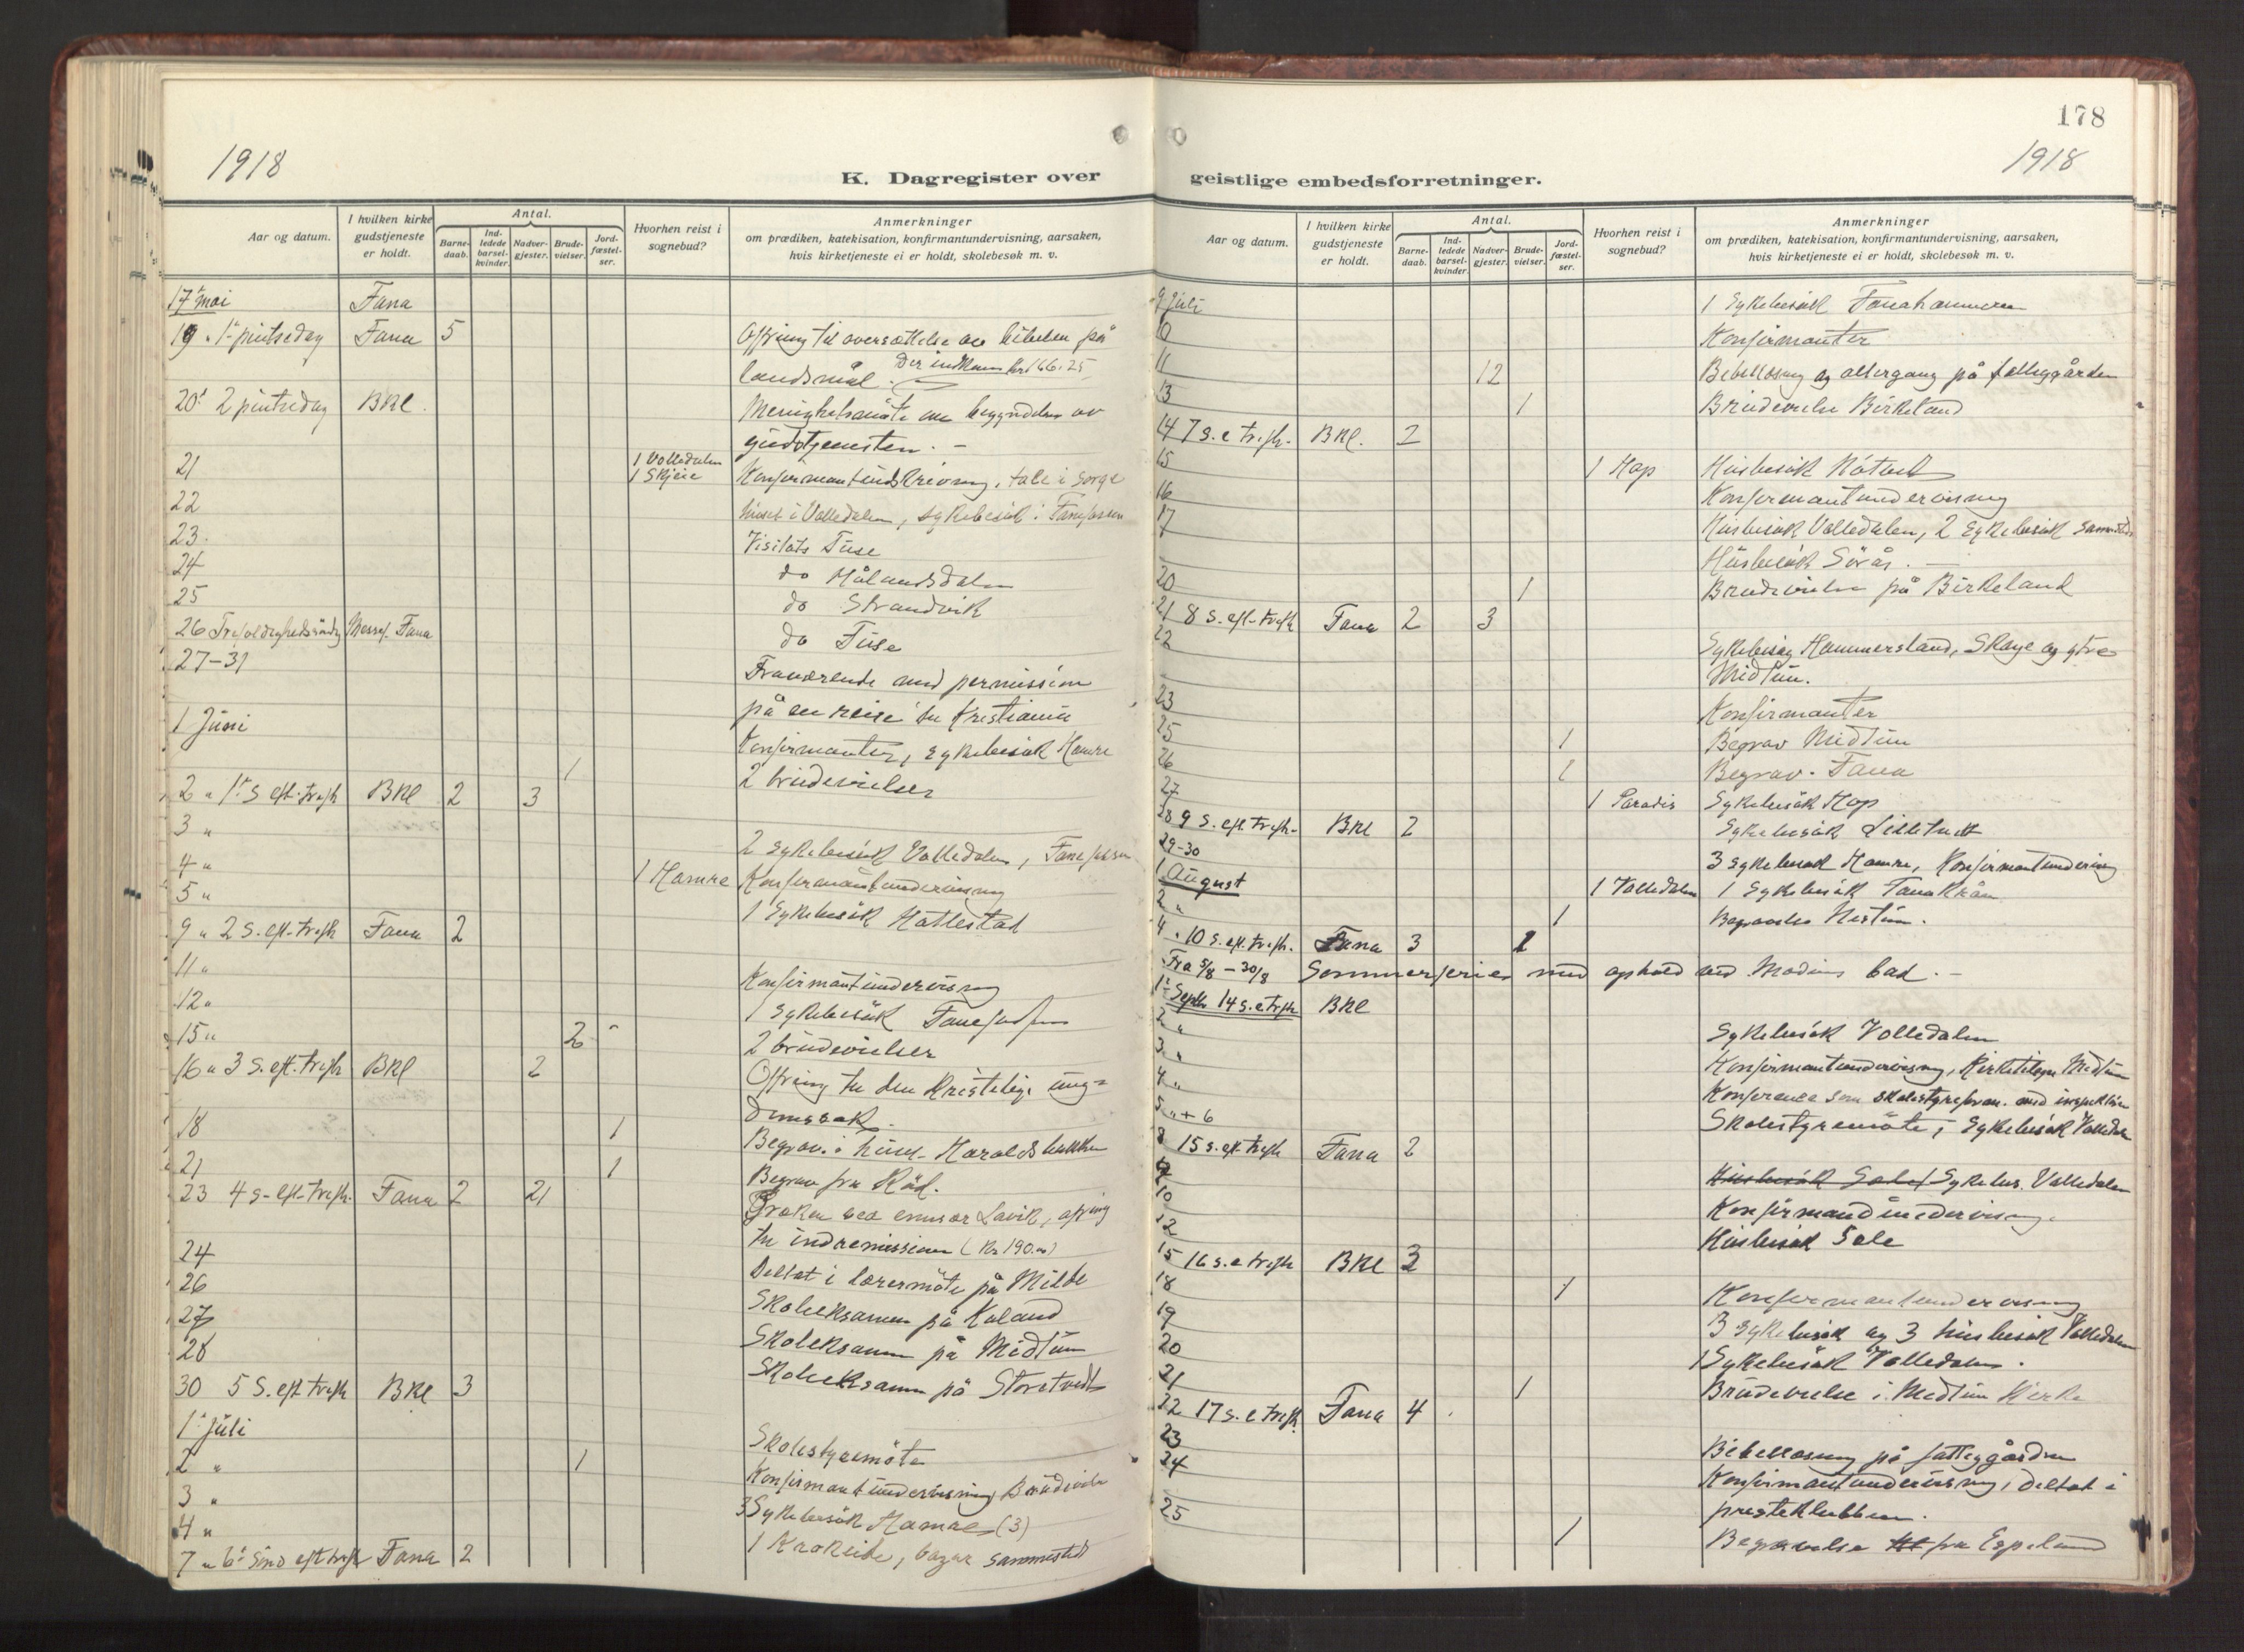 178
1918
1918
K. Dagregister over
geistlige embedsforretninger.
Aar og datum.
I hvilken kirke gudstjeneste er holdt.
Antal.
Barne-daab.
Ind-ledede barsel-kvinder.
Nadver-gjester.
Brude-vielser.
Jord-fæstel-ser.
Hvorhen reist i sognebud?
Anmerkninger
om prædiken, katekisation, konfirmantundervisning, aarsaken,
hvis kirketjeneste ei er holdt, skolebesøk m. v.
17 mai Fana
19 " 1 pintsedag Fana 5 Offring til oversættelse av bibelen på
landsmål. Der indkom kr 166.25
20 2 pintsedag BKl. Menighetsmöte om begyndelsen av
gudstjenesten. -
21 1 Volledalen
1 Skjeie Konfirmantindskrivning, tale i sorge
22 huset i Volledalen, sykebesök i
23. Visitats Fuse
24 do Hålandsdalen
25 do Strandvik
26 Trefoldighedssöndag Messef. Fana do Fuse
27-31 Fraværende med permission
på en reise til Kristiania
1 Juni Konfirmanter, sykebesök Hamre
1 2 brudevielser
2 " 1 S eft. trefh BKl 2 3
3 " 2 sykebesök Volledalen,
4 " 1 Hamre Konfirmantundervisning
5 " 1 Sykebesök Hatlestad
9 " 2 S. eft. trefh Fana 2
11 " Konfirmantundervisning
12 " 1 Sykebesök
15 " 2 2 brudevielser
16 " 3 S. eft. trefh BKl 2 Offring til den kristelige ung=
domssak.
18 1 Begrav. i huset
21 1 Begrav fra Råd.
23 4 S. eft. trefh. Fana 2 21 ved Lavik, offring
til indremissionen (Kr 190.00)
24 Deltat i lærermöte på Milde
26 Skoleksamen på Kaland
27 Skoleksamen på Midtun
28 Skoleksamen på Storetvedt
30 5 S. eft trefh BKl 3
1 Juli Skolestyremöte
2 " 1 Konfirmantundervisning, Brudevielse
3 " 3 Sykebesök Hamre (3)
4 " 1 Krokeide, bazar sammesteds
7 " 6 Sönd eft trefh Fana 2
9 Juli 1 Sykebesök Fanahammeren
10 Konfirmanter
11 12 Bibellæsning og altergang på fattiggården
13 1 Brudevielse Birkeland
14 7 S. e trefh. BKl. 2
15 1 Hop Husbesök
16 Konfirmantundervisning
17 Husbesök Volledalen, 2 Sykebesök sammesteds
Husbesök Sörås. -
20 1 Brudevielse på Birkeland
21 8 S. eft. trefh Fana 2 3
22 Sykebesög Hammersland, Skage og
Midtun.
23 Konfirmanter
25 1 Begrav Midtun
26 1 Begrav. Fana
27 1 Paradis Sykebesök Hop
28 9 S. eft. trefh. BKl 2 Sykebesök
29-30 3 sykebesök Hamre, Konfirmantundervisng
1 August 1 Volledalen 1 Sykebesök
2 " 1 Begravelse Nestun.
4 " 10 S. eft. trefh. Fana 3 1
Fra 5/8 - 30/8 Sommerferie med ophold ved Modums bad. -
1 Septbr 14 S. e trefh BKl
2 " Sykebesök Volledalen
3 " Konfirmantundervisning, Midtun
4 " Konferance som skolestyreform. med inspektören
5 " + 6 Skolestyremöte, Sykebesök Volledal
8 15 S. eft. trefh Fana 2
9 Husbesök Sale / Sykebes. Volledalen
10 Konfirmandundervisning.
12 Husbesök Sale
15 16 S. e trefh BKl 3
18 1 Konfirmantundervisning
19 3 sykebesök og 3 husbesök Volledalen
20 1 Sykebesök Volledalen.
21 1 Brudevielse i Midtun Kirke
22 17 S. e trefh. Fana 4
23 Bibellæsning på fattiggården
24 Konfirmantundervisning, deltat i
presteklubben.
25 1 Begravelse fra Espeland